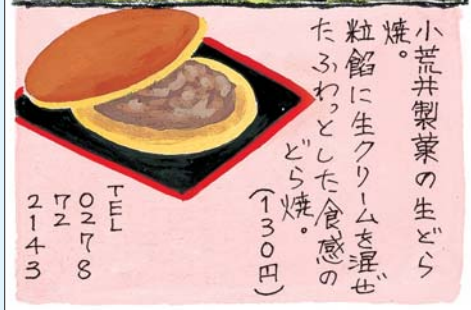 小荒井製菓の生どら
焼。
粒餡に生クリームを混ぜ
たふわっとした食感の
どら焼。
(130円)
TEL
0278
72
2143